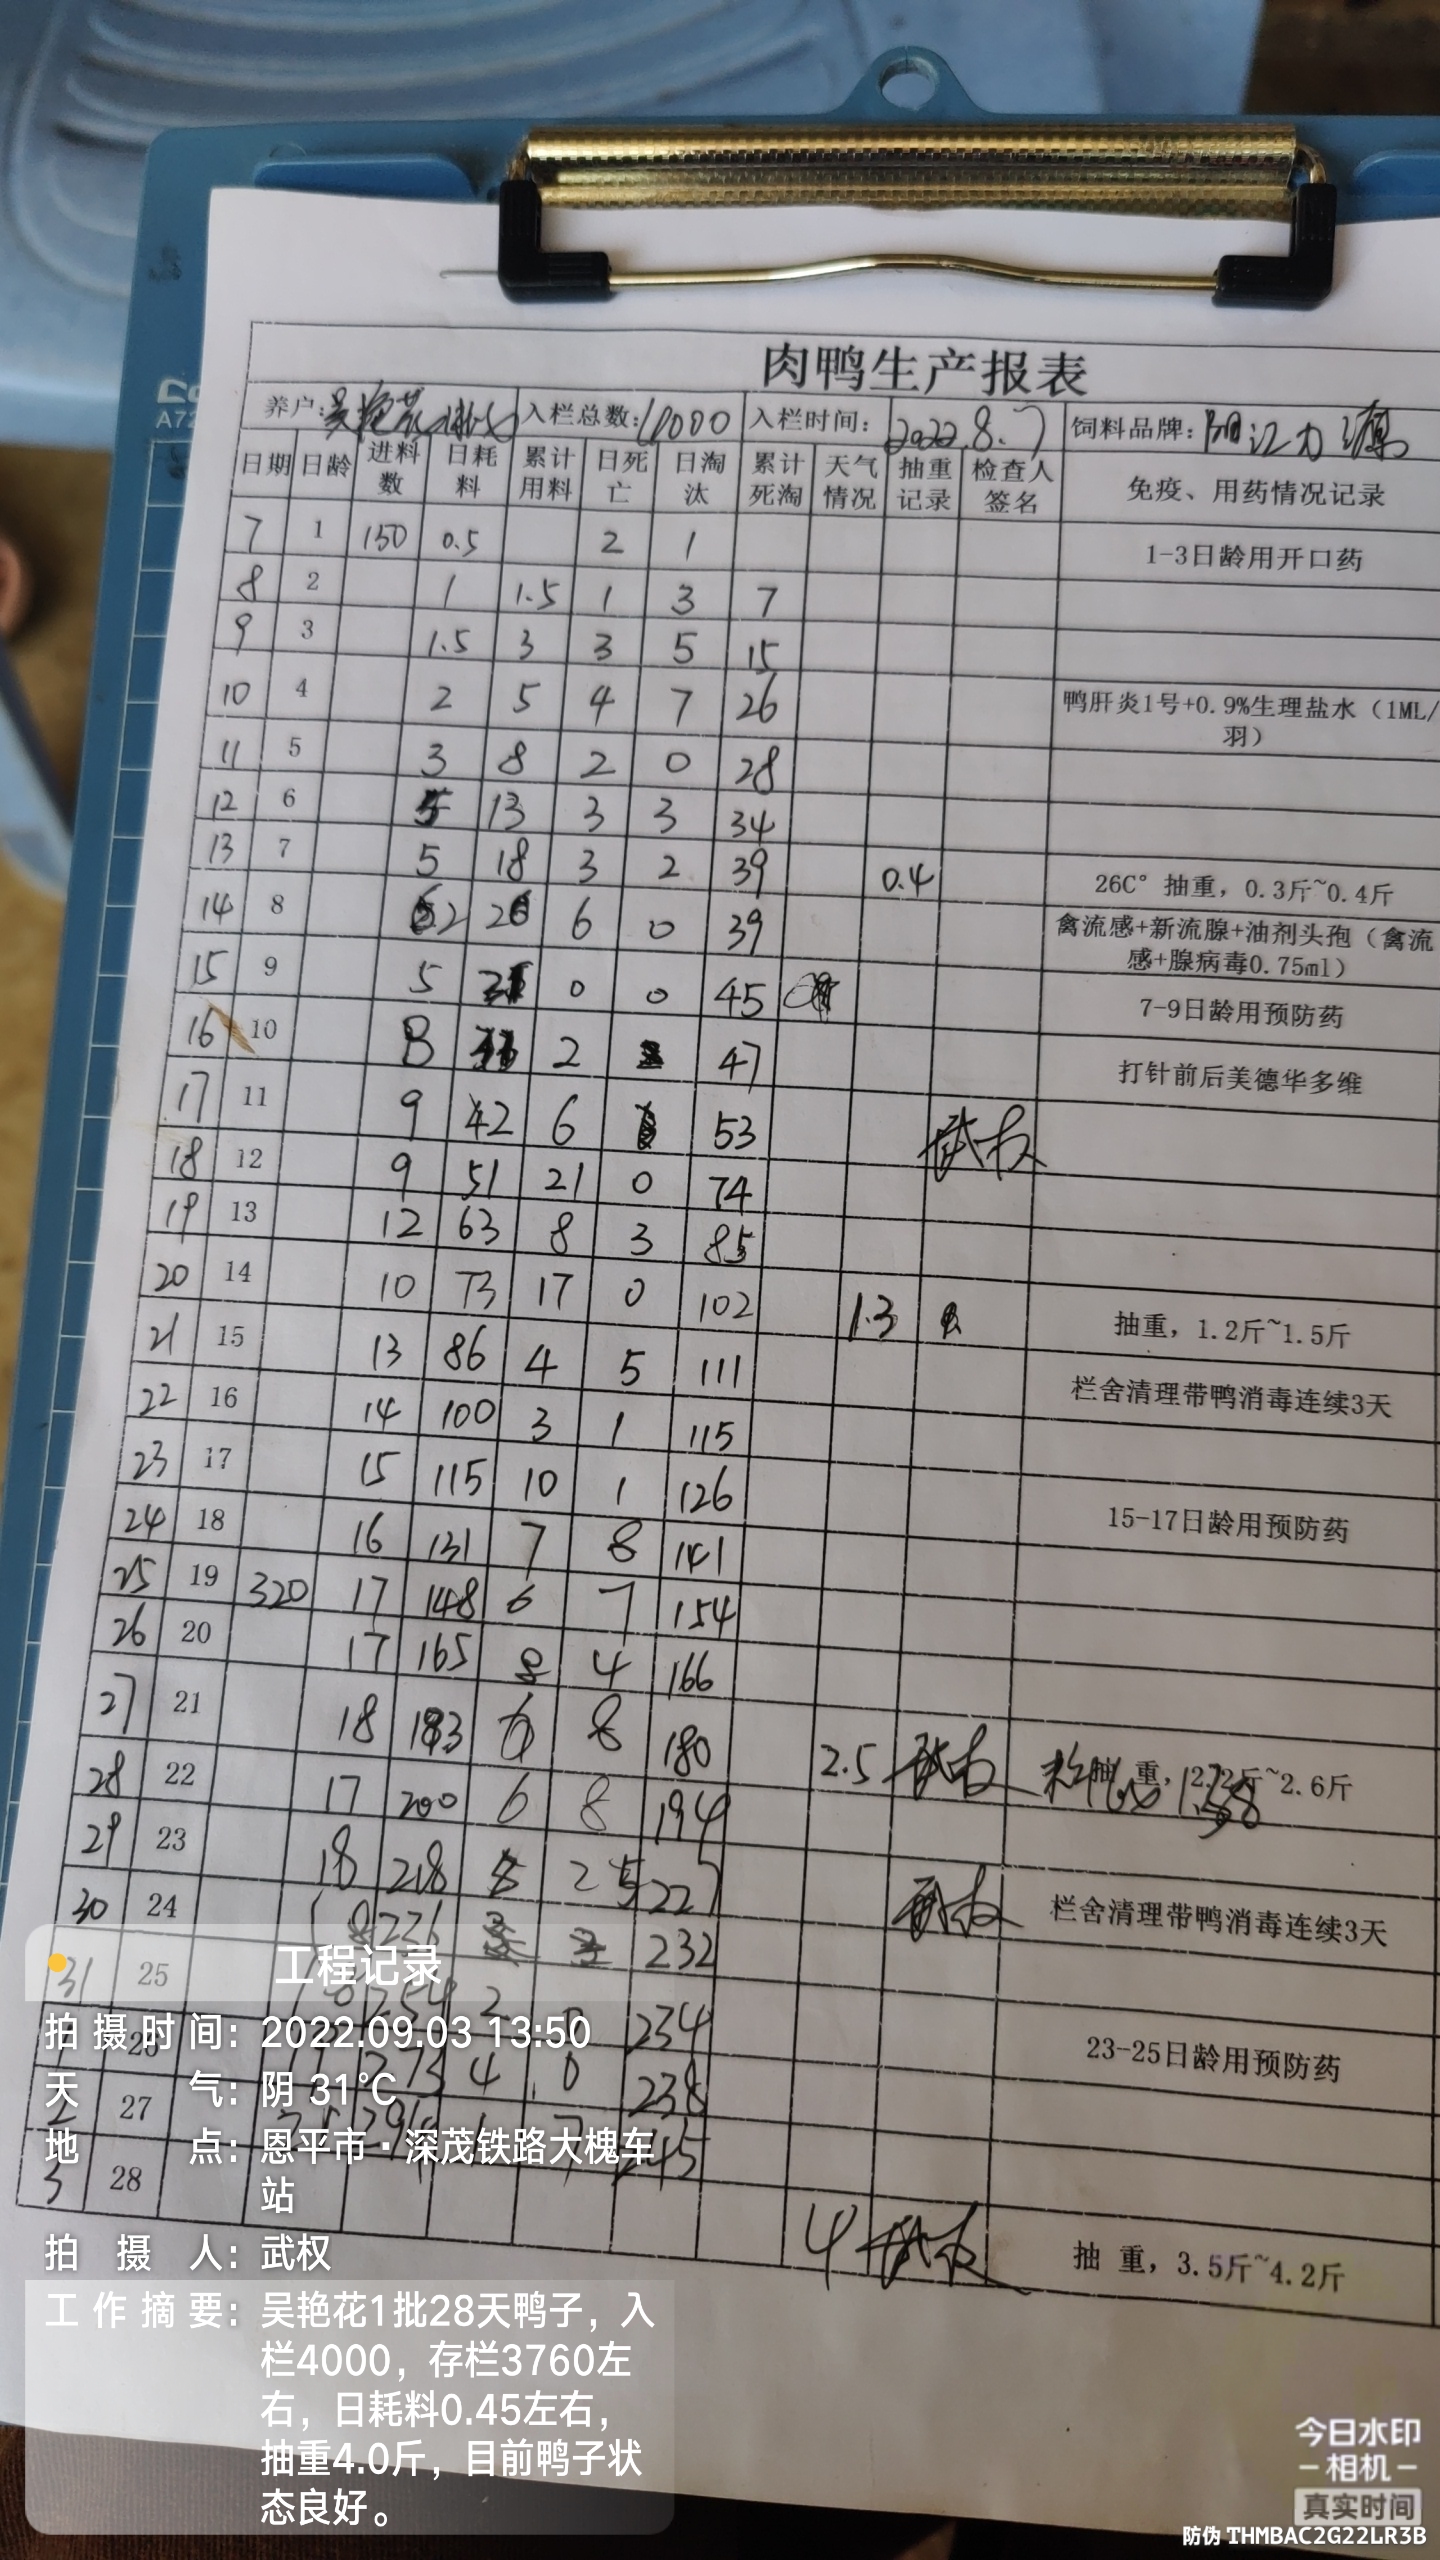 肉鸭生产报表
养户: 吴艳花 入栏总数: 入栏时间: 2022.8.7 饲料品牌: 阳江力源
日期 日龄 进料数 日耗料 累计用料 日死亡 日淘汰 累计死淘 天气情况 抽重记录 检查人签名 免疫、用药情况记录
7 1 150 0.5 2 1 1-3日龄用开口药
8 2 1 1.5 1 3 7
9 3 1.5 3 3 5 15
10 4 2 5 4 7 26 鸭肝炎1号+0.9%生理盐水（1ML/羽）
11 5 3 8 2 0 28
12 6 5 13 3 3 34
13 7 5 18 3 2 39 0.4 26C°抽重，0.3斤~0.4斤
14 8 6 0 39 禽流感+新流腺+油剂头孢（禽流感+腺病毒0.75ml）
15 9 5 0 0 45 7-9日龄用预防药
16 10 8 2 47 打针前后美德华多维
17 11 9 42 6 53 武权
18 12 9 51 21 0 74
19 13 12 63 8 3 85
20 14 10 73 17 0 102 1.3 抽重，1.2斤~1.5斤
21 15 13 86 4 5 111 栏舍清理带鸭消毒连续3天
22 16 14 100 3 1 115
23 17 15 115 10 1 126 15-17日龄用预防药
24 18 16 131 7 8 141
25 19 320 17 148 6 7 154
26 20 17 165 8 4 166
27 21 18 183 6 8 180 2.5 武权 抽 重，2.2斤~2.6斤
28 22 17 200 6 8 194
29 23 18 218 227 武权 栏舍清理带鸭消毒连续3天
30 24 18 236 232
31 25 254 2 0 234 23-25日龄用预防药
4 0 238
2 27 245
3 28 4 武权 抽 重，3.5斤~4.2斤
工程记录
拍摄时间: 2022.09.03 13:50
天 气: 阴 31℃
地 点: 恩平市·深茂铁路大槐车
站
拍 摄 人: 武权
工作摘要: 吴艳花1批28天鸭子，入
栏4000，存栏3760左
右，日耗料0.45左右，
抽重4.0斤，目前鸭子状
态良好。
今日水印
相机
真实时间
防伪 THMBAC2G22LR3B